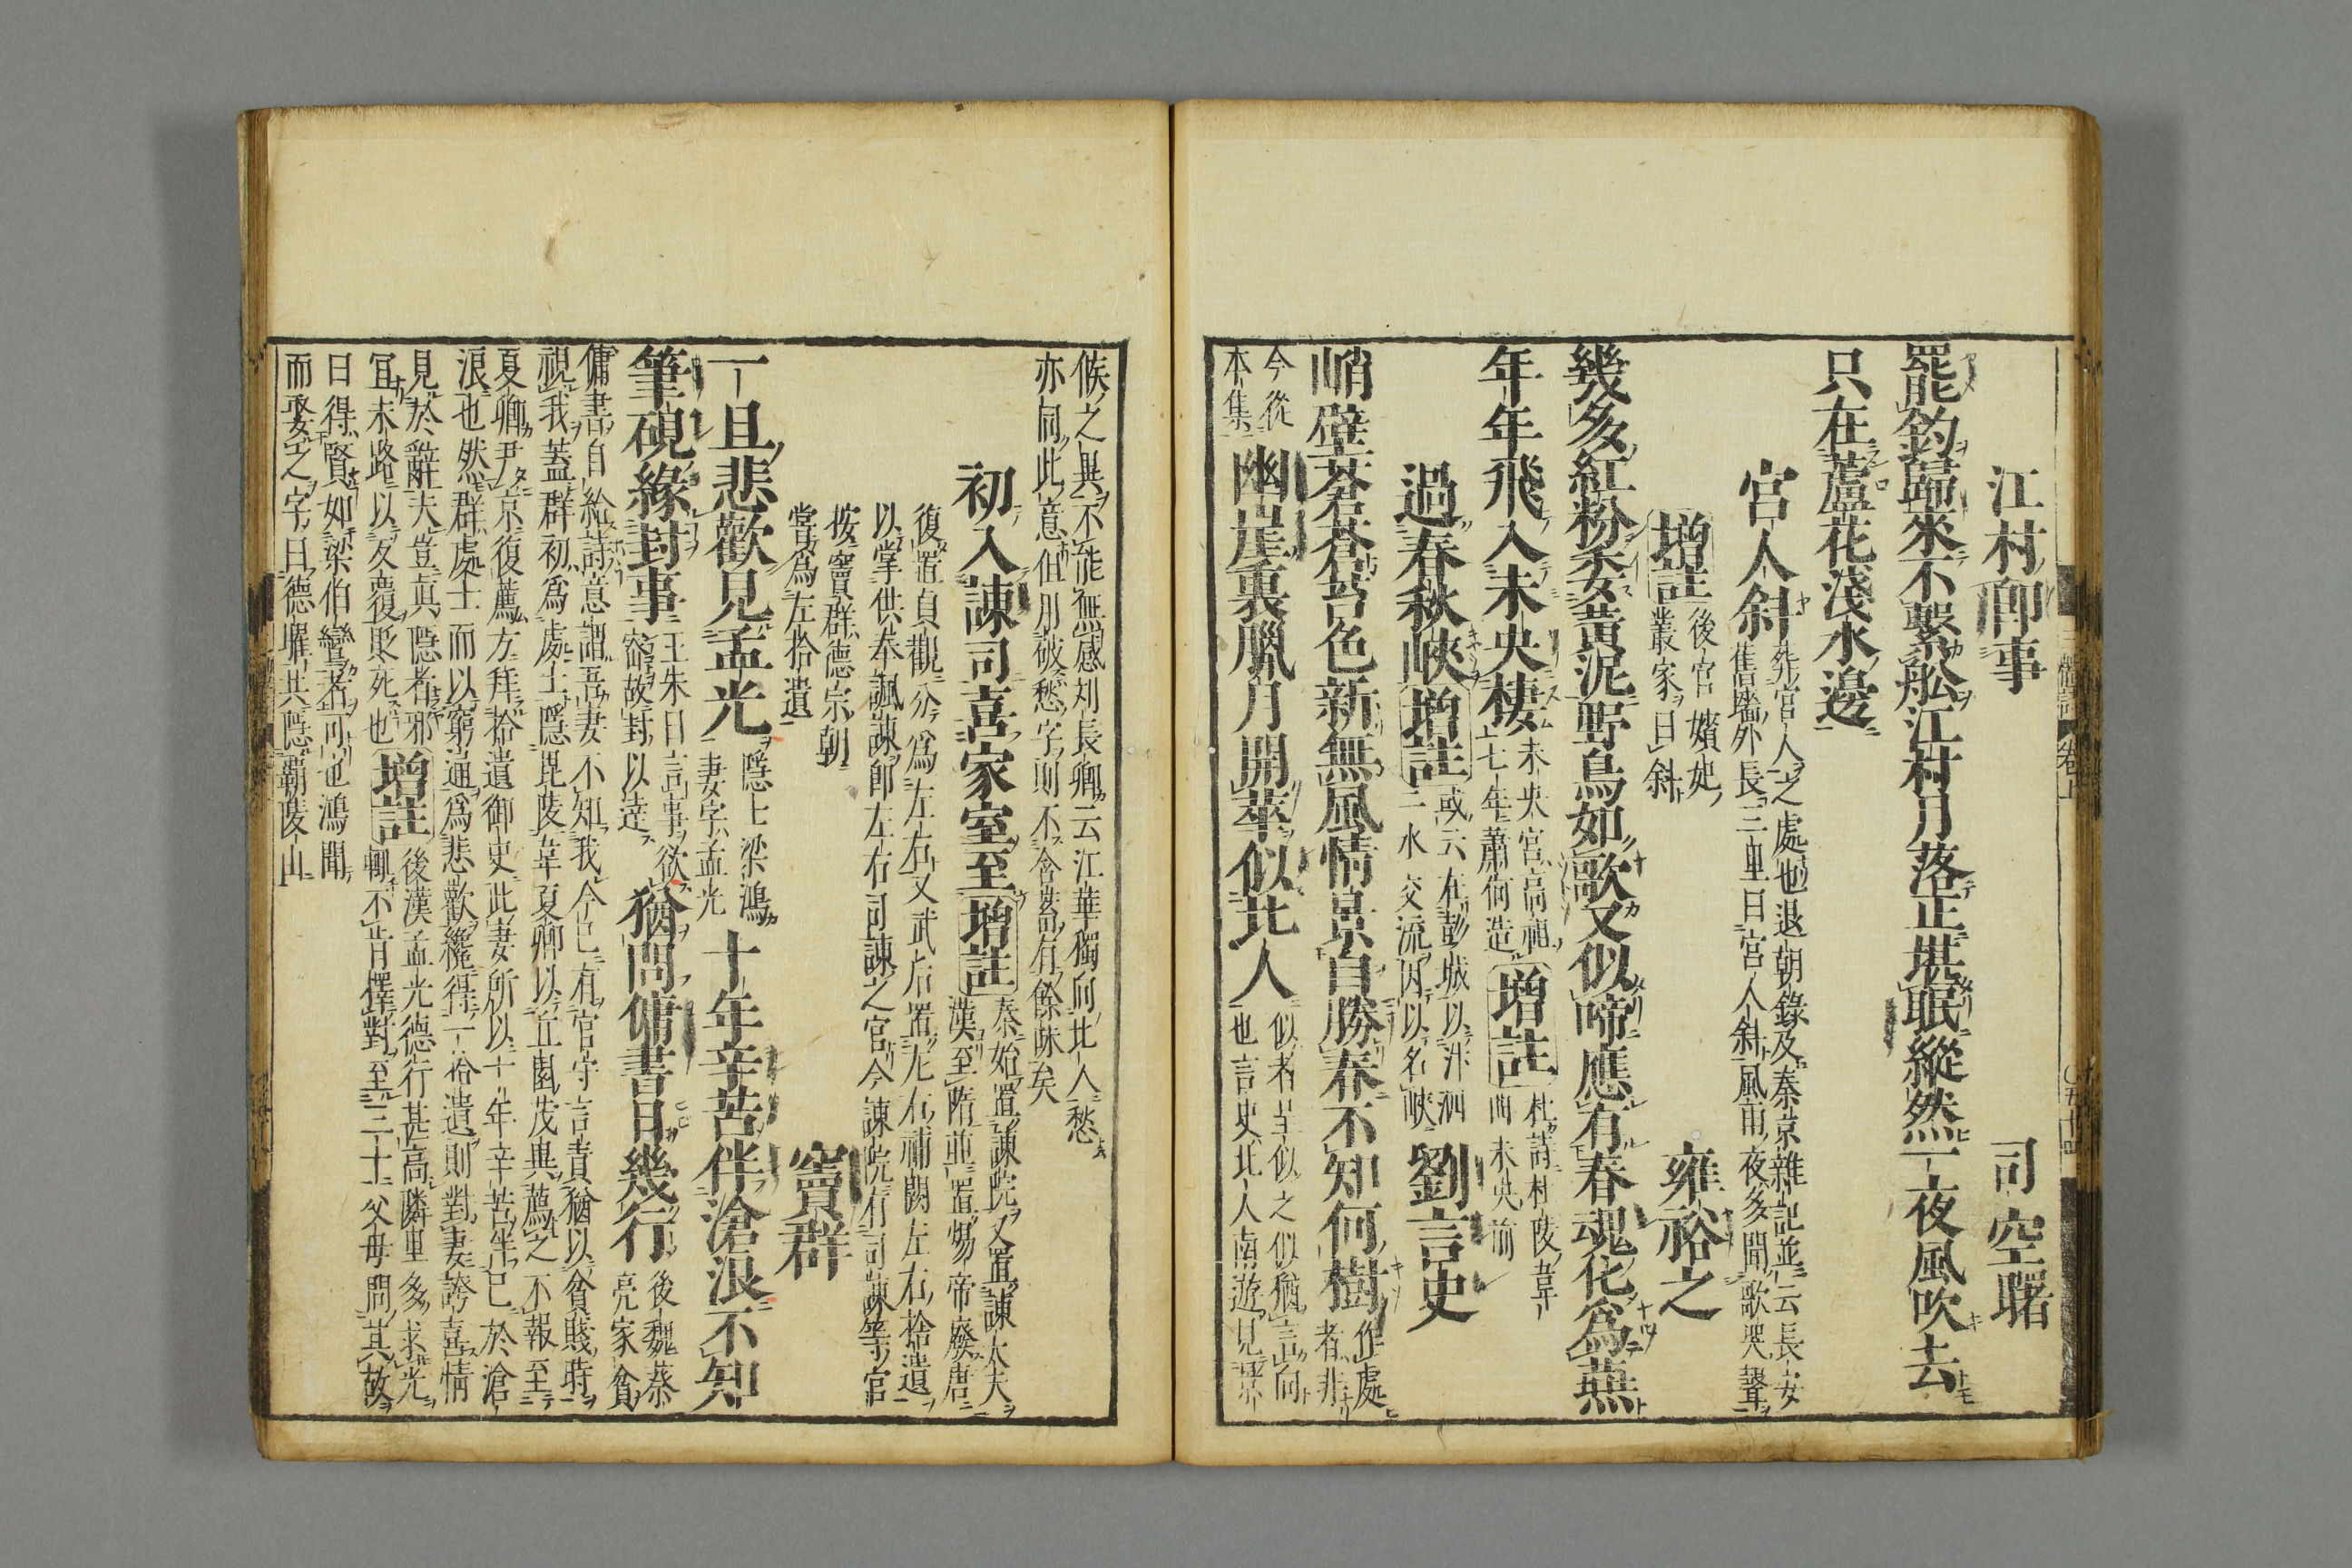 江村即事
司空曙
罷釣歸來不繫舩江村月落正堪眠縱然一夜風吹去
只在蘆花淺水邊
宮人斜
葬宮人之處也退朝錄及秦京雜記並云長安
舊墻外長三里曰宮人斜風雨夜多聞歌哭聲
増註
後宮嬪妃
叢冢曰斜
雍裕之
幾多紅粉委黄泥野鳥如歌又似啼應有春魂化爲燕
年年飛入未央棲
未央宮高祖
七年蕭何造
増註
杜詩杜陵韋
曲未央前
過春秋峽
増註
或云在彭城以汴泗
二水交流因以名峽
劉言史
峭壁蒼蒼苔色新無風情景自勝春不知何樹
作處
者非
今從
本集
幽崖裏臘月開華似北人
似者呈似之似猶言向
也言史北人南遊見景
候之異不能無感刘長卿云江華獨向北人愁
亦同此意但用破愁字則不含蓄有餘味矣
初入諫司喜家室至
増註
秦始置諫院又置諫大夫
漢至隋並置煬帝廢唐
復置貞觀分爲左右又武后置左右補闕左右拾遺
以掌供奉諷諫即左右司諫之官今諫院有司諫等官
按竇群德宗朝
嘗爲左拾遺
竇群
一旦悲歡見孟光
隱士梁鴻
妻字孟光
十年辛苦伴滄浪不知
筆硯緣封事
王朱曰言事欲
密故封以達
猶問傭書日幾行
後魏蔡
亮家貧
傭書自給詩意謂吾妻不知我今已有官守言責猶以貧賤時
視我蓋群初爲處士隱毘陵韋夏卿以丘園茂異薦之不報至
夏卿尹京復薦方拜拾遺御史此妻所以十年辛苦伴已於滄
浪也然群處士而以窮通爲悲歡纔得一拾遺則對妻誇喜情
見於辭夫豈真隱者邪
宜末路以友覆貶死也
増註
後漢孟光德行甚高隣里多求光
輒不肯擇對至三十父母問其故
曰得賢如梁伯鸞者可也鴻聞
而娶之字曰德耀共隱覇陵山